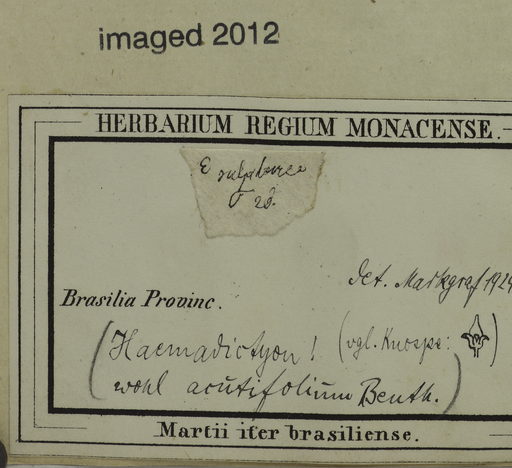 imaged 2012
HERBARIUM REGIUM MONACENSE.
E sulphurea
det. Markgraf 1924
Brasilia Provinc.
(Haemadictyon! (vgl. Knospe: )
wohl acutifolium Benth.)
Martii iter brasiliense.